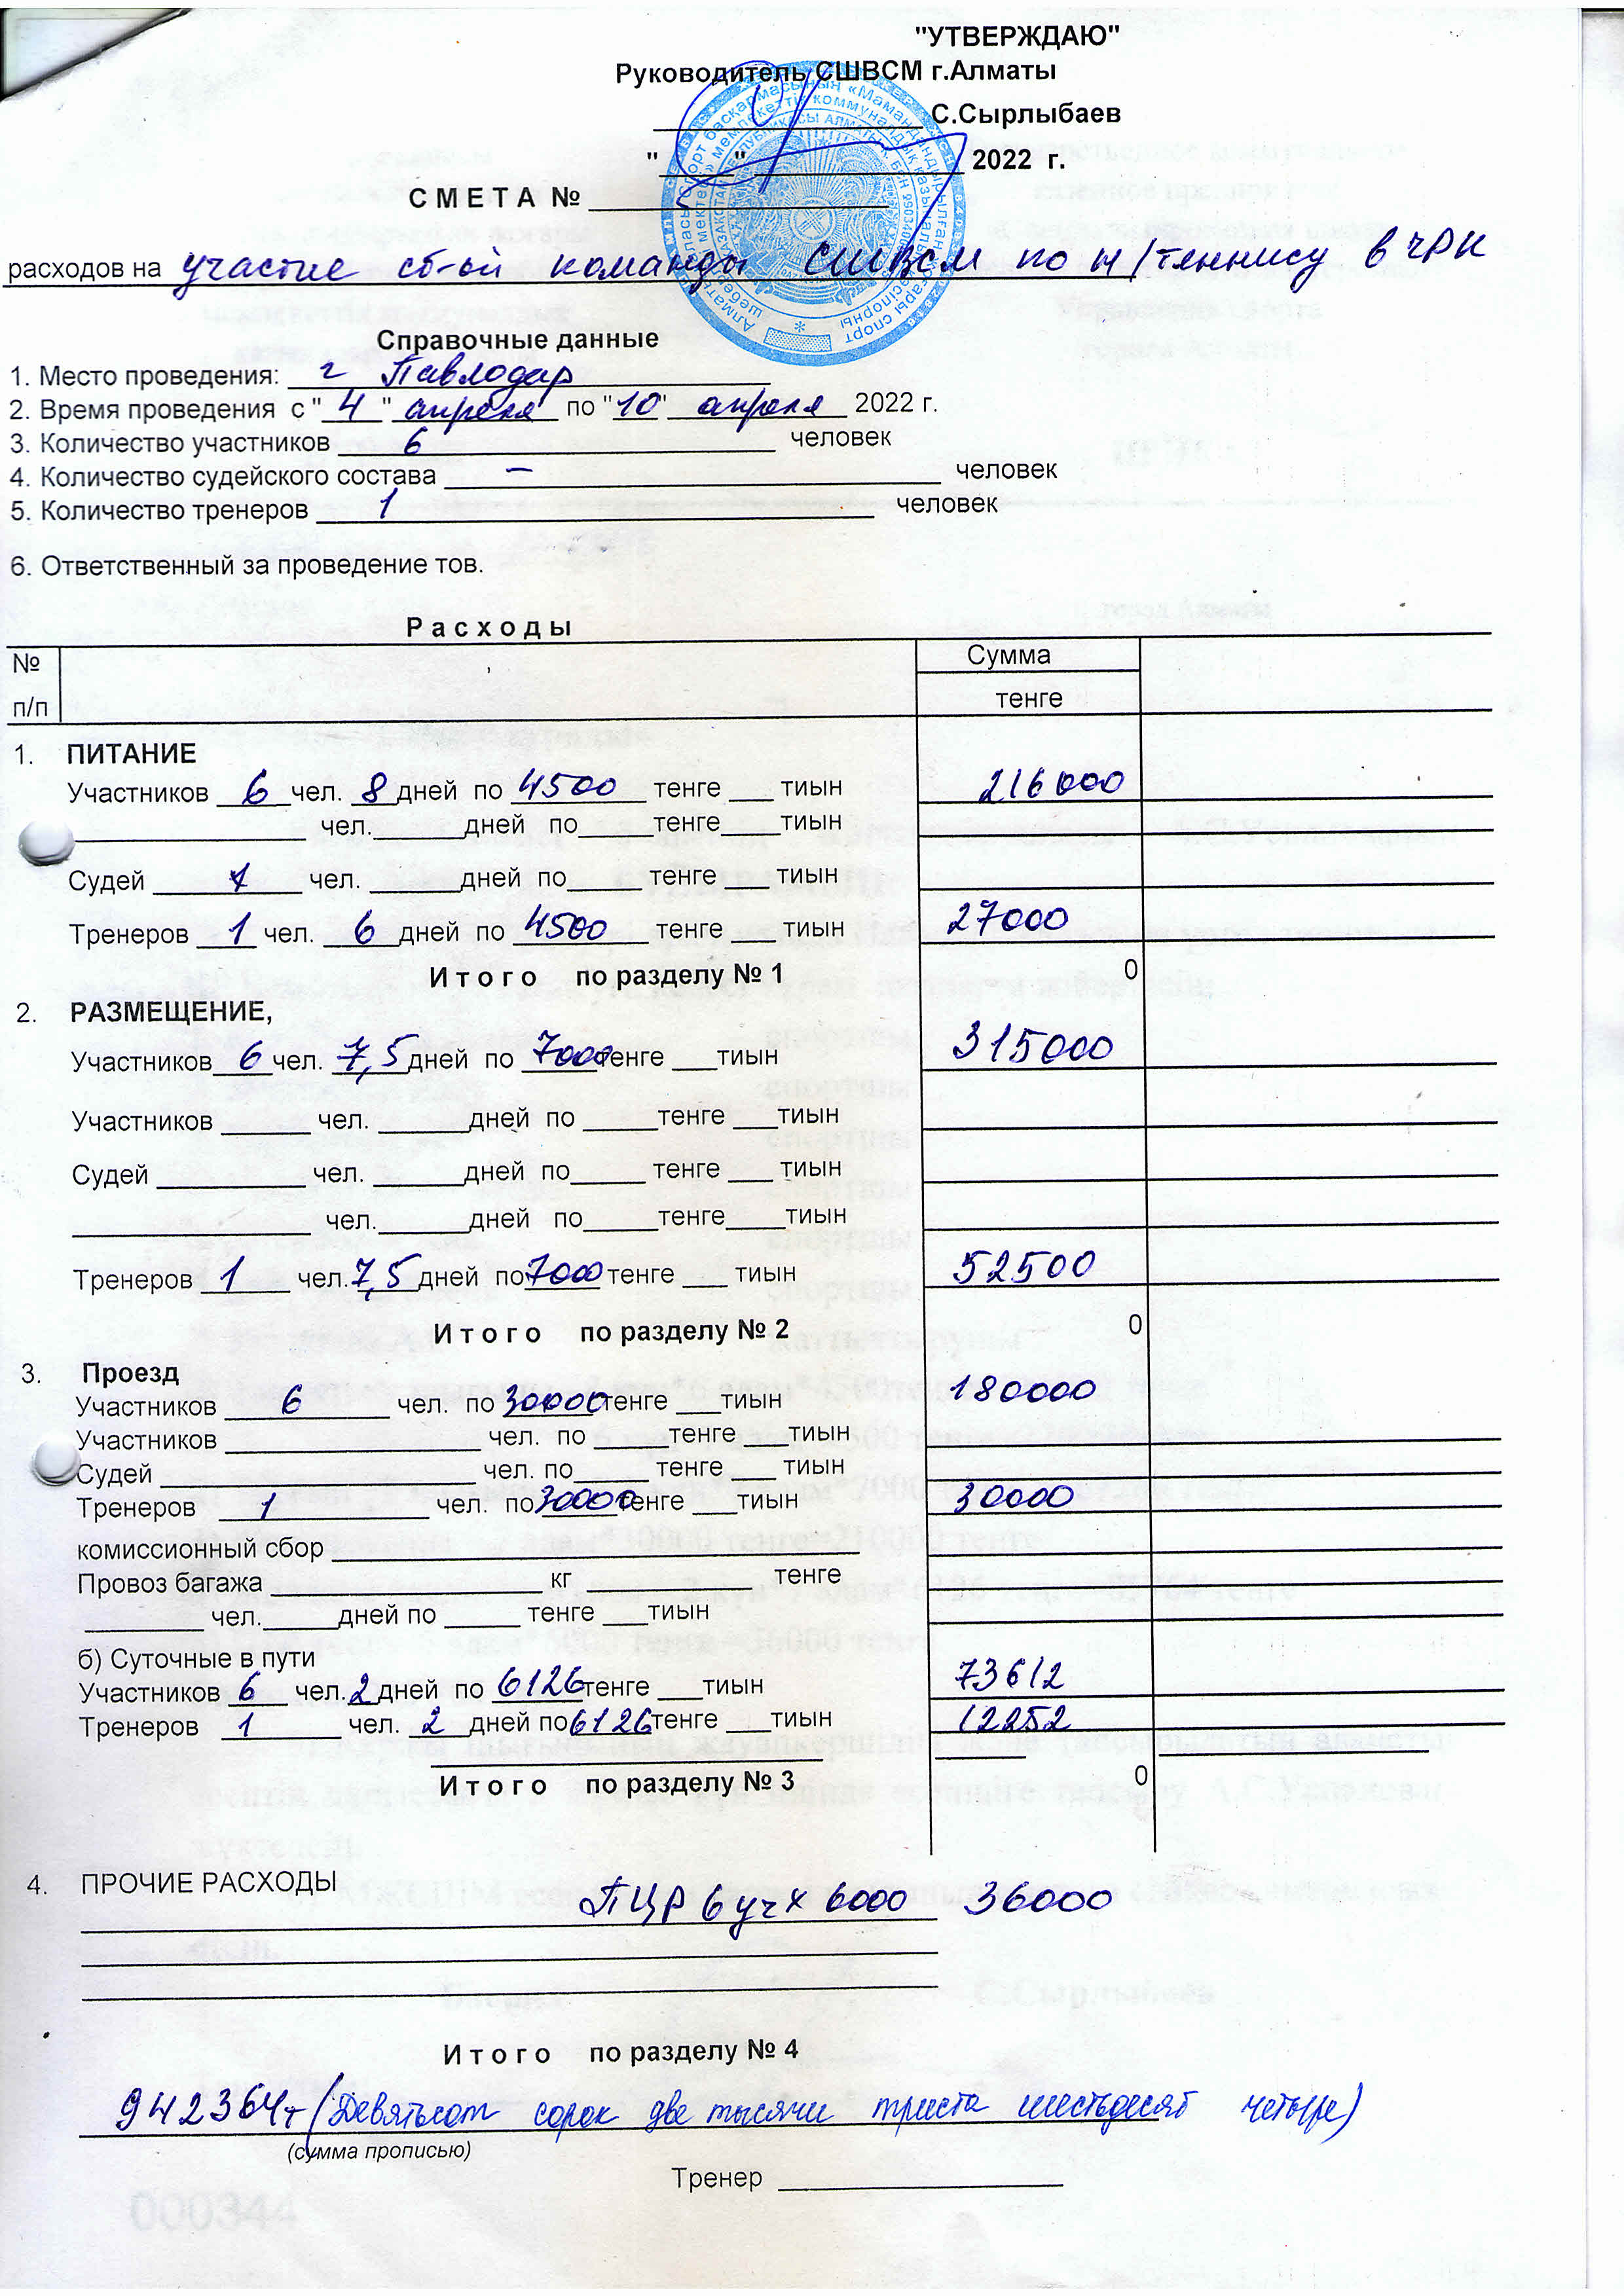 "УТВЕРЖДАЮ"
Руководитель СШВСМ г.Алматы
С.Сырлыбаев
"____"______________ 2022 г.
С М Е Т А № ____________________
расходов на участие сб-ой команды СШВСМ по н/теннису в ЧРК
Справочные данные
1. Место проведения: г Павлодар
2. Время проведения с "4" апреля по "10" апреля 2022 г.
3. Количество участников 6 человек
4. Количество судейского состава – человек
5. Количество тренеров 1 человек
6. Ответственный за проведение тов.
Р а с х о д ы
№ п/п Сумма
тенге
1. ПИТАНИЕ
Участников 6 чел. 8 дней по 4500 тенге ___ тиын 216000
________________ чел.______дней по_____тенге____тиын
Судей ____ чел. ______дней по_____ тенге ___ тиын
Тренеров 1 чел. 6 дней по 4500 тенге ___ тиын 27000
И т о г о по разделу № 1 0
2. РАЗМЕЩЕНИЕ,
Участников 6 чел. 7,5 дней по 7000 тенге ___тиын 315000
Участников ______ чел. ______дней по _____тенге ___тиын
Судей __________ чел. ______дней по_____ тенге ___ тиын
________________ чел.______дней по_____тенге____тиын
Тренеров 1 чел. 7,5 дней по 7000 тенге ___ тиын 52500
И т о г о по разделу № 2 0
3. Проезд
Участников 6 чел. по 30000 тенге ___тиын 180000
Участников _________________ чел. по _____тенге ___тиын
Судей _____________________ чел. по_____ тенге ___ тиын
Тренеров 1 чел. по 30000 тенге ___тиын 30000
комиссионный сбор ___________________________________
Провоз багажа __________________ кг ___________ тенге
________ чел._____дней по _____ тенге ___тиын
б) Суточные в пути
Участников 6 чел. 2 дней по 6126 тенге ___тиын 73612
Тренеров 1 чел. 2 дней по 6126 тенге ___тиын 12252
И т о г о по разделу № 3 0
4. ПРОЧИЕ РАСХОДЫ
ПЦР 6 уч х 6000 36000
И т о г о по разделу № 4
942364т (Девятьсот сорок две тысячи триста шестьдесят четыре)
(сумма прописью)
Тренер ___________________
000344